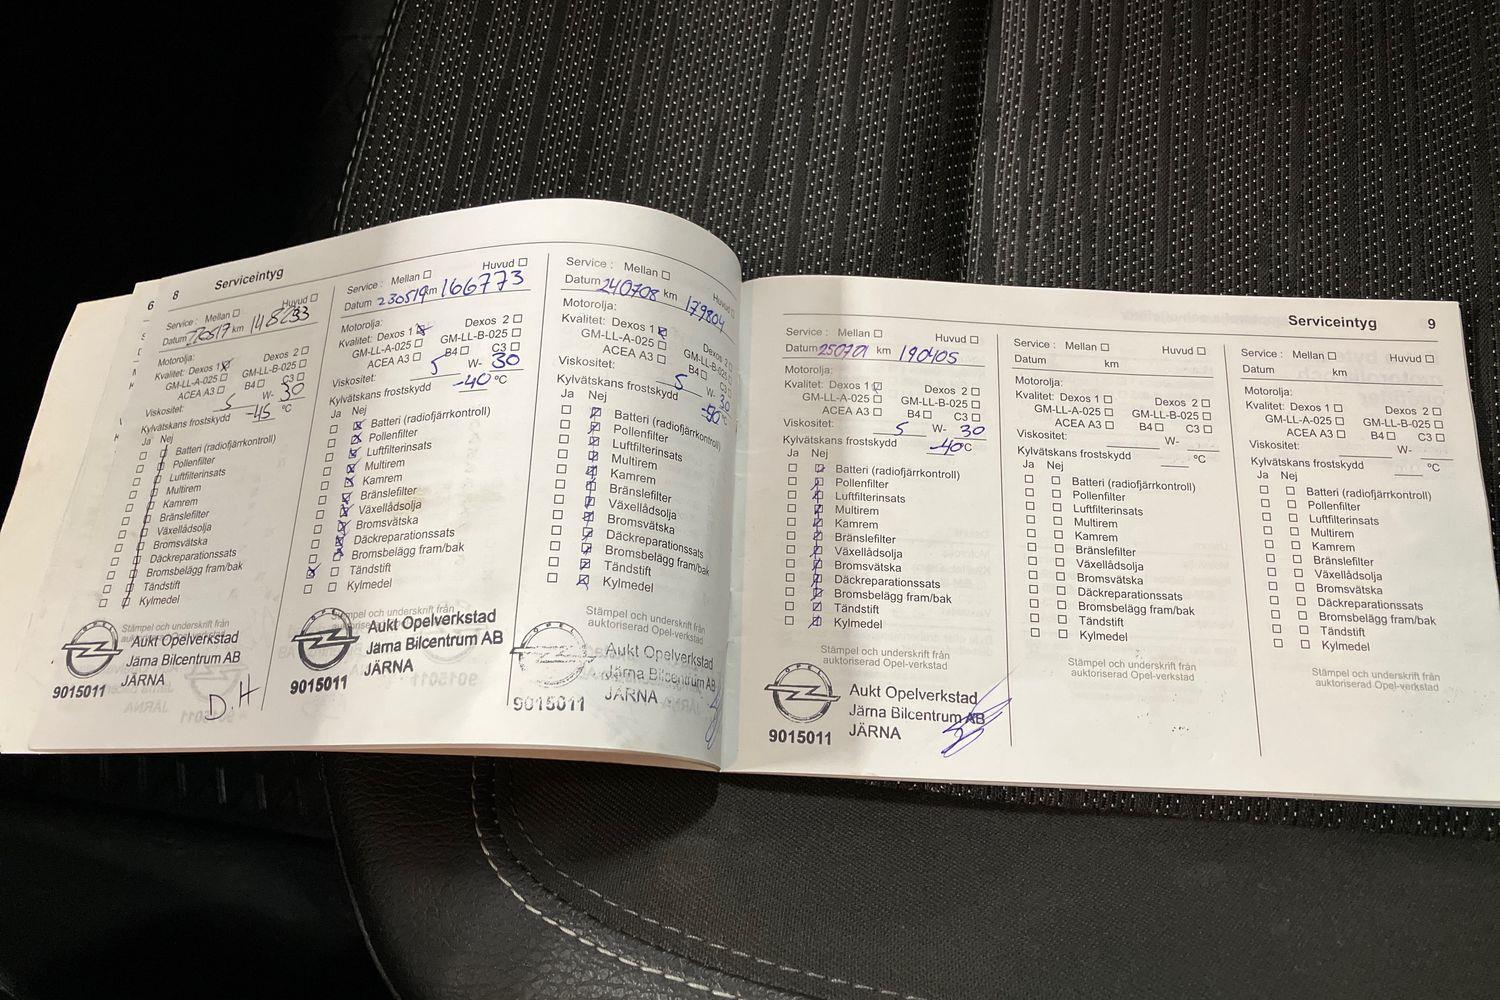 6
8 Serviceintyg
Service : Mellan ☐ Huvud ☐
Datum km
Motorolja:
Kvalitet: Dexos 1 ☒ Dexos 2 ☐
GM-LL-A-025 ☐ GM-LL-B-025 ☐
ACEA A3 ☐ B4 ☐ C3 ☐
Viskositet: 5 W- 30
Kylvätskans frostskydd -45 °C
Ja Nej
Batteri (radiofjärrkontroll)
Pollenfilter
Luftfilterinsats
Multirem
Kamrem
Bränslefilter
Växellådsolja
Bromsvätska
Däckreparationssats
Bromsbelägg fram/bak
Tändstift
Kylmedel
Stämpel och underskrift från
auktoriserad Opel-verkstad
OPEL
Aukt Opelverkstad
Järna Bilcentrum AB
JÄRNA
9015011
D.H
Service : Mellan ☐ Huvud ☐
Datum 230519 km 166773
Motorolja:
Kvalitet: Dexos 1 ☒ Dexos 2 ☐
GM-LL-A-025 ☐ GM-LL-B-025 ☐
ACEA A3 ☐ B4 ☐ C3 ☐
Viskositet: 5 W- 30
Kylvätskans frostskydd -40 °C
Ja Nej
Batteri (radiofjärrkontroll)
Pollenfilter
Luftfilterinsats
Multirem
Kamrem
Bränslefilter
Växellådsolja
Bromsvätska
Däckreparationssats
Bromsbelägg fram/bak
Tändstift
Kylmedel
Stämpel och underskrift från
auktoriserad Opel-verkstad
OPEL
Aukt Opelverkstad
Järna Bilcentrum AB
JÄRNA
9015011
Service : Mellan ☐ Huvud ☐
Datum 240708 km 179804
Motorolja:
Kvalitet: Dexos 1 ☒ Dexos
GM-LL-A-025 ☐ GM-LL-B-025
ACEA A3 ☐ B4 ☐ C3 ☐
Viskositet: 5 W- 30
Kylvätskans frostskydd °C
Ja Nej
Batteri (radiofjärrkontroll)
Pollenfilter
Luftfilterinsats
Multirem
Kamrem
Bränslefilter
Växellådsolja
Bromsvätska
Däckreparationssats
Bromsbelägg fram/bak
Tändstift
Kylmedel
Stämpel och underskrift från
auktoriserad Opel-verkstad
OPEL
Aukt Opelverkstad
Järna Bilcentrum AB
JÄRNA
9015011
Serviceintyg 9
Service : Mellan ☐ Huvud ☐
Datum 250701 km 190405
Motorolja:
Kvalitet: Dexos 1 ☒ Dexos 2 ☐
GM-LL-A-025 ☐ GM-LL-B-025 ☐
ACEA A3 ☐ B4 ☐ C3 ☐
Viskositet: 5 W- 30
Kylvätskans frostskydd -40 °C
Ja Nej
Batteri (radiofjärrkontroll)
Pollenfilter
Luftfilterinsats
Multirem
Kamrem
Bränslefilter
Växellådsolja
Bromsvätska
Däckreparationssats
Bromsbelägg fram/bak
Tändstift
Kylmedel
Stämpel och underskrift från
auktoriserad Opel-verkstad
OPEL
Aukt Opelverkstad
Järna Bilcentrum AB
JÄRNA
9015011
Service : Mellan ☐ Huvud ☐
Datum km
Motorolja:
Kvalitet: Dexos 1 ☐ Dexos 2 ☐
GM-LL-A-025 ☐ GM-LL-B-025 ☐
ACEA A3 ☐ B4 ☐ C3 ☐
Viskositet: W-
Kylvätskans frostskydd °C
Ja Nej
Batteri (radiofjärrkontroll)
Pollenfilter
Luftfilterinsats
Multirem
Kamrem
Bränslefilter
Växellådsolja
Bromsvätska
Däckreparationssats
Bromsbelägg fram/bak
Tändstift
Kylmedel
Stämpel och underskrift från
auktoriserad Opel-verkstad
Service : Mellan ☐ Huvud ☐
Datum km
Motorolja:
Kvalitet: Dexos 1 ☐ Dexos 2 ☐
GM-LL-A-025 ☐ GM-LL-B-025 ☐
ACEA A3 ☐ B4 ☐ C3 ☐
Viskositet: W-
Kylvätskans frostskydd °C
Ja Nej
Batteri (radiofjärrkontroll)
Pollenfilter
Luftfilterinsats
Multirem
Kamrem
Bränslefilter
Växellådsolja
Bromsvätska
Däckreparationssats
Bromsbelägg fram/bak
Tändstift
Kylmedel
Stämpel och underskrift från
auktoriserad Opel-verkstad